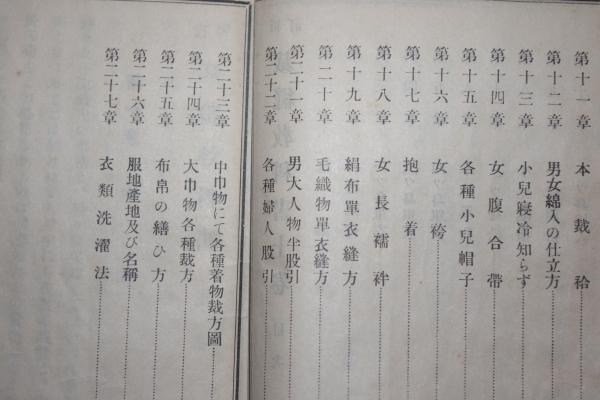 第十一章 本裁袷
第十二章 男女綿入の仕立方
第十三章 小兒寢冷知らず
第十四章 女腹合帶
第十五章 各種小兒帽子
第十六章 女袴
第十七章 抱着
第十八章 女長襦袢
第十九章 絹布單衣縫方
第二十章 毛織物單衣縫方
第二十一章 男大人物半股引
第二十二章 各種婦人股引
第二十三章 中巾物にて各種着物裁方圖
第二十四章 大巾物各種裁方
第二十五章 布帛の繕ひ方
第二十六章 服地產地及び名稱
第二十七章 衣類洗濯法